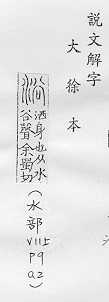 說文解字
大徐本
洒身也从水
谷聲余蜀切
(水部
VIII5
P9
a2)